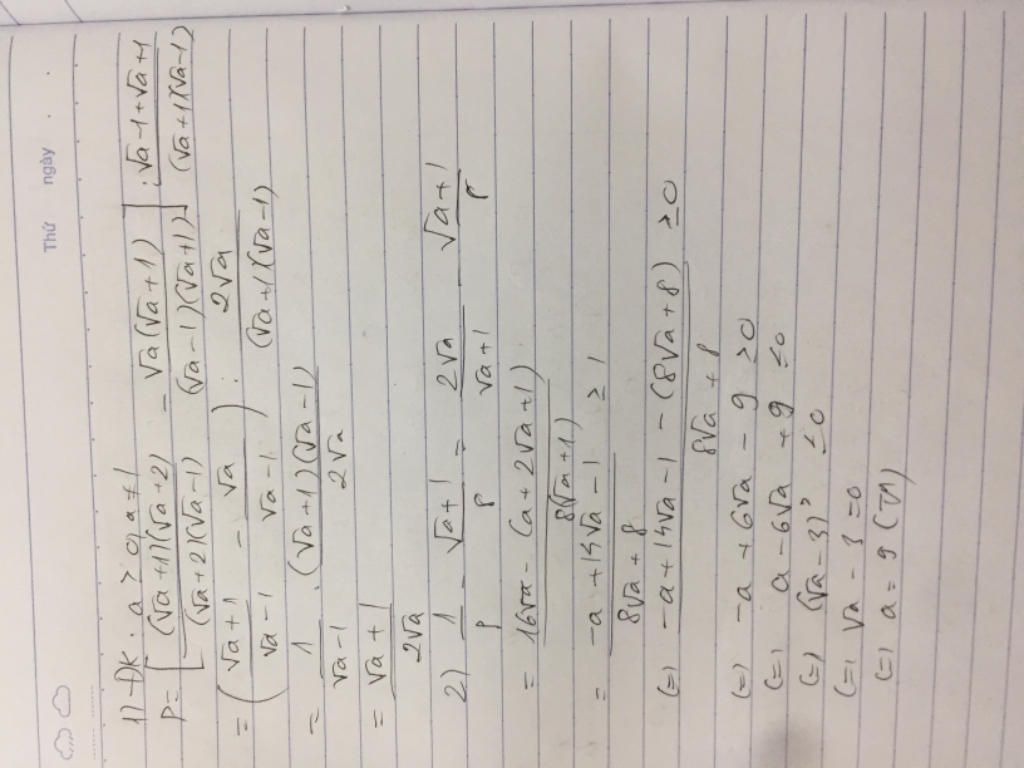 Thứ ngày
1) -ĐK: a > 0; a ≠ 1
P = [ (√a+1)(√a+2) / (√a+2)(√a-1) - √a(√a+1) / (√a-1)(√a+1) ] : √a-1+√a+1 / (√a+1)(√a-1)
= ( √a+1 / √a-1 - √a / √a-1 ) : 2√a / (√a+1)(√a-1)
= 1 / √a-1 . (√a+1)(√a-1) / 2√a
= √a+1 / 2√a
2) 1/P - √a+1 / 8 = 2√a / √a+1 - √a+1 / 8
= 16√a - (a+2√a+1) / 8(√a+1)
= -a+14√a-1 / 8√a+8 ≥ 1
(=) -a+14√a-1-(8√a+8) / 8√a+8 ≥0
(=) -a+6√a-9 ≥0
(=) a-6√a+9 ≤0
(=) (√a-3)² ≤0
(=) √a-3=0
(=) a=9 (TM)